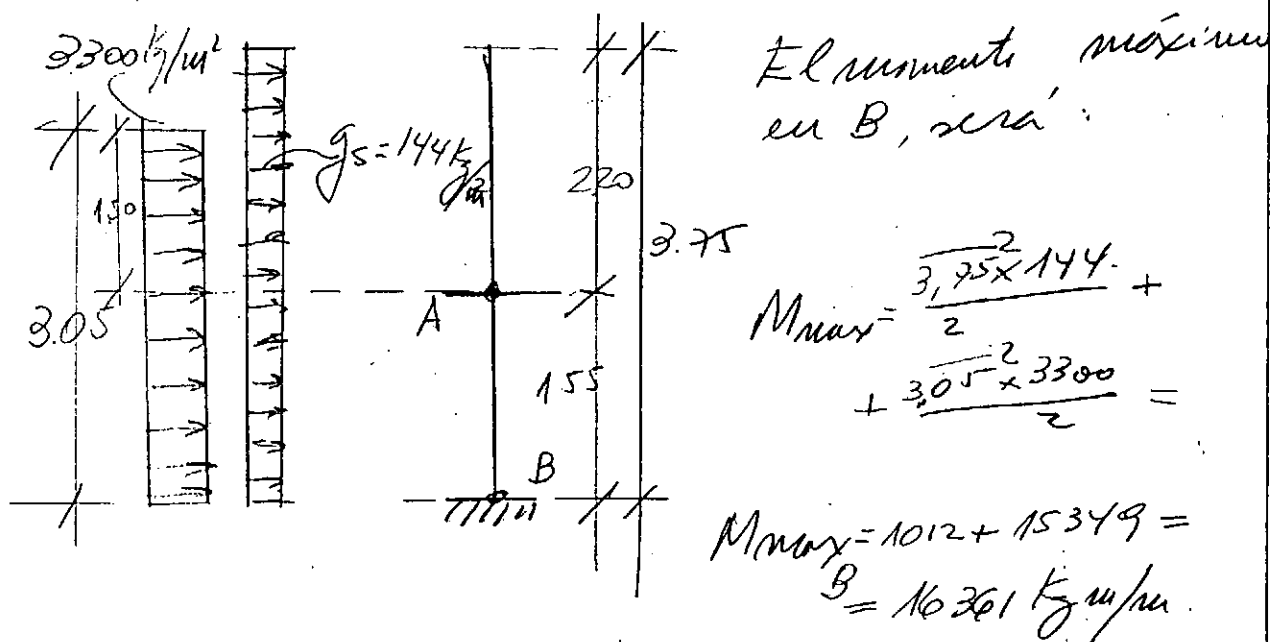 3300 Kg/m²
gs = 144 Kg/m²
150
3.05
220
3.75
A
155
B
El momento máximo
en B, será:
Mmax = 3,75² x 144 / 2 +
+ 3,05² x 3300 / 2 =
Mmax = 1012 + 15349 =
B
= 16361 Kg m/m.